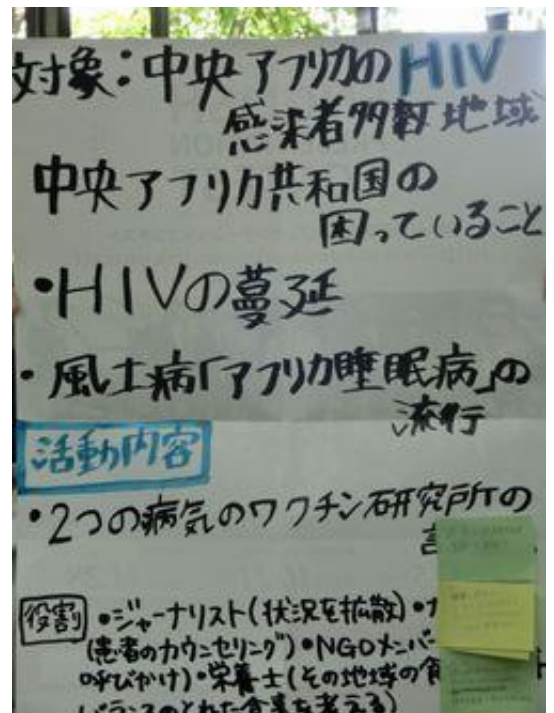 対象：中央アフリカのHIV
感染者多数地域
中央アフリカ共和国の
困っていること
・HIVの蔓延
・風土病「アフリカ睡眠病」の
流行
活動内容
・2つの病気のワクチン研究所の
役割 ・ジャーナリスト(状況を拡散)・カ
(患者のカウンセリング)・NGOメンバー
呼びかけ)・栄養士(その地域の食
バランスのとれた食事を考える)